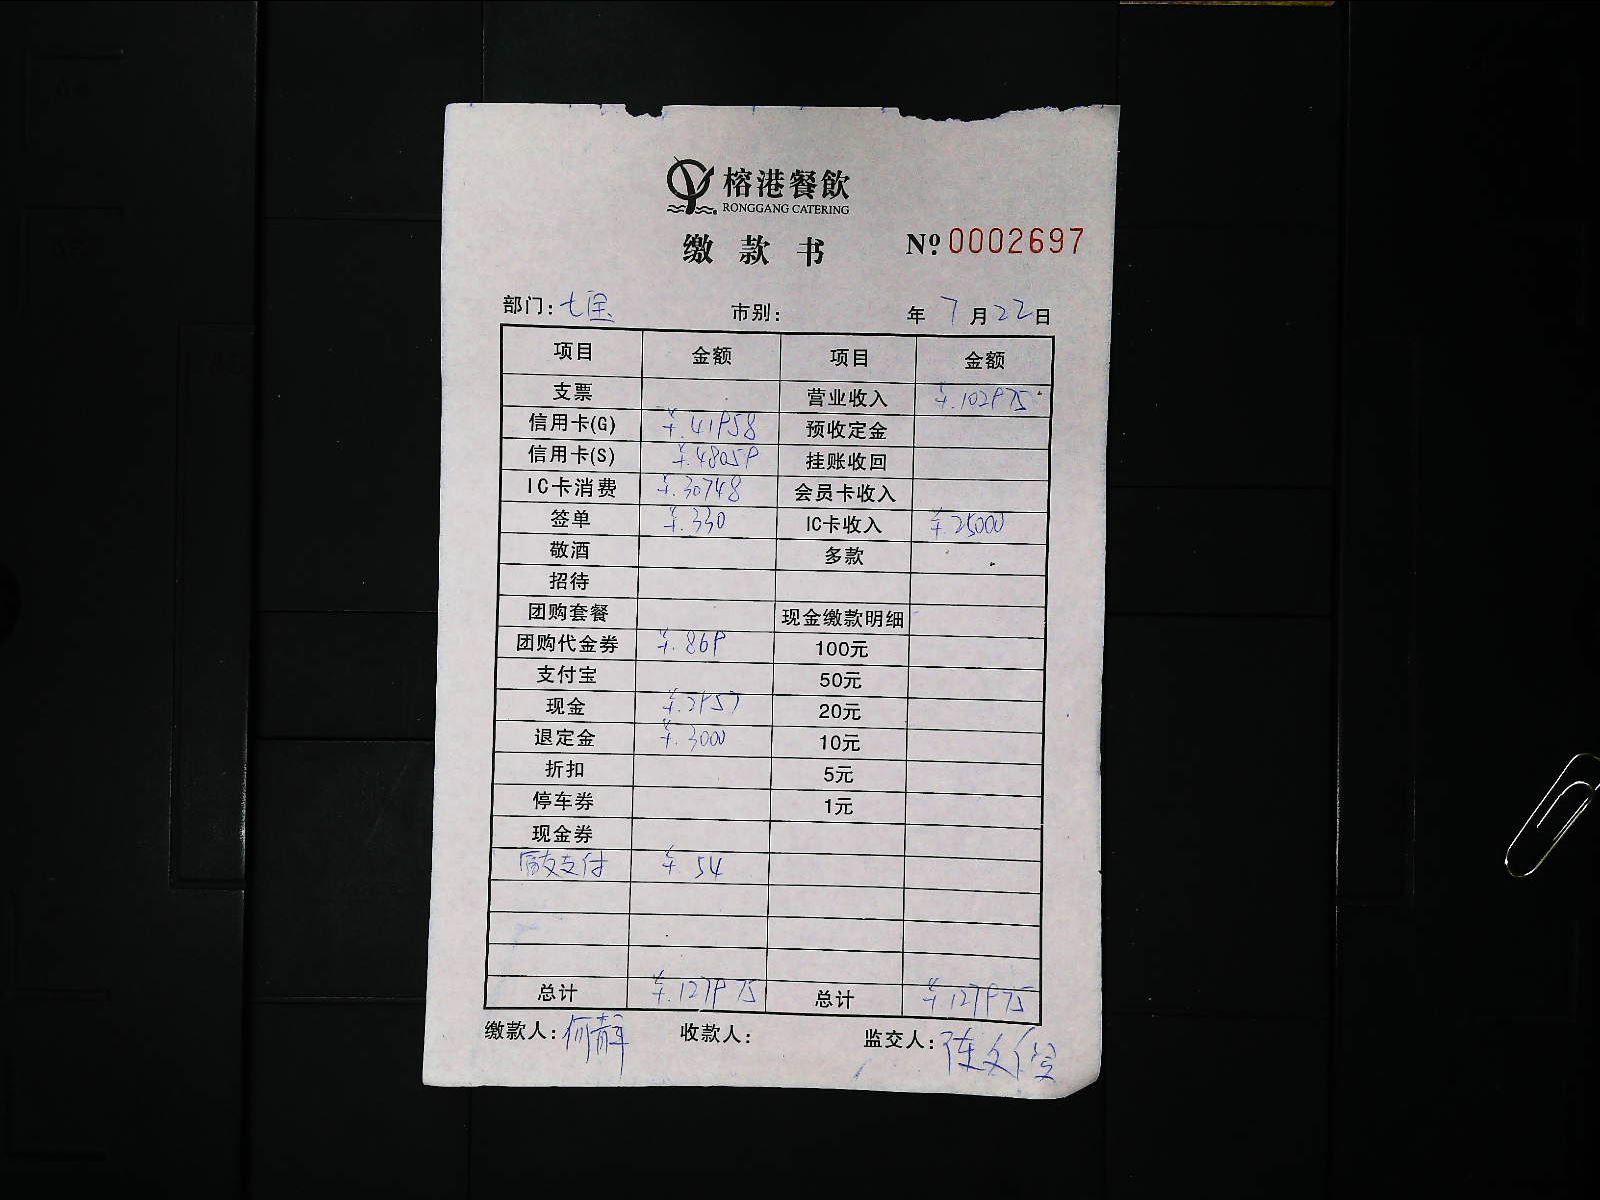 榕港餐飲
RONGGANG CATERING
缴款书 № 0002697
部门: 七宝 市别: 年 7 月 22 日
项目 金额 项目 金额
支票 营业收入 ¥.102975
信用卡(G) ¥.41958 预收定金
信用卡(S) ¥.48059 挂账收回
IC卡消费 ¥.30748 会员卡收入
签单 ¥.330 IC卡收入 ¥.25000
敬酒 多款
招待
团购套餐 现金缴款明细
团购代金券 ¥.869 100元
支付宝 50元
现金 ¥.2957 20元
退定金 ¥.3000 10元
折扣 5元
停车券 1元
现金券
支付 ¥ 54
总计 ¥.127975 总计 ¥.127975
缴款人: 何静 收款人: 监交人: 陈文